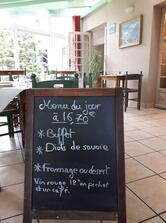 Menu du jour
à 16,70 €
* Buffet
* Diots de savoie
* Frommage ou dessert
Vin rouge 12° en pichet
et un café.